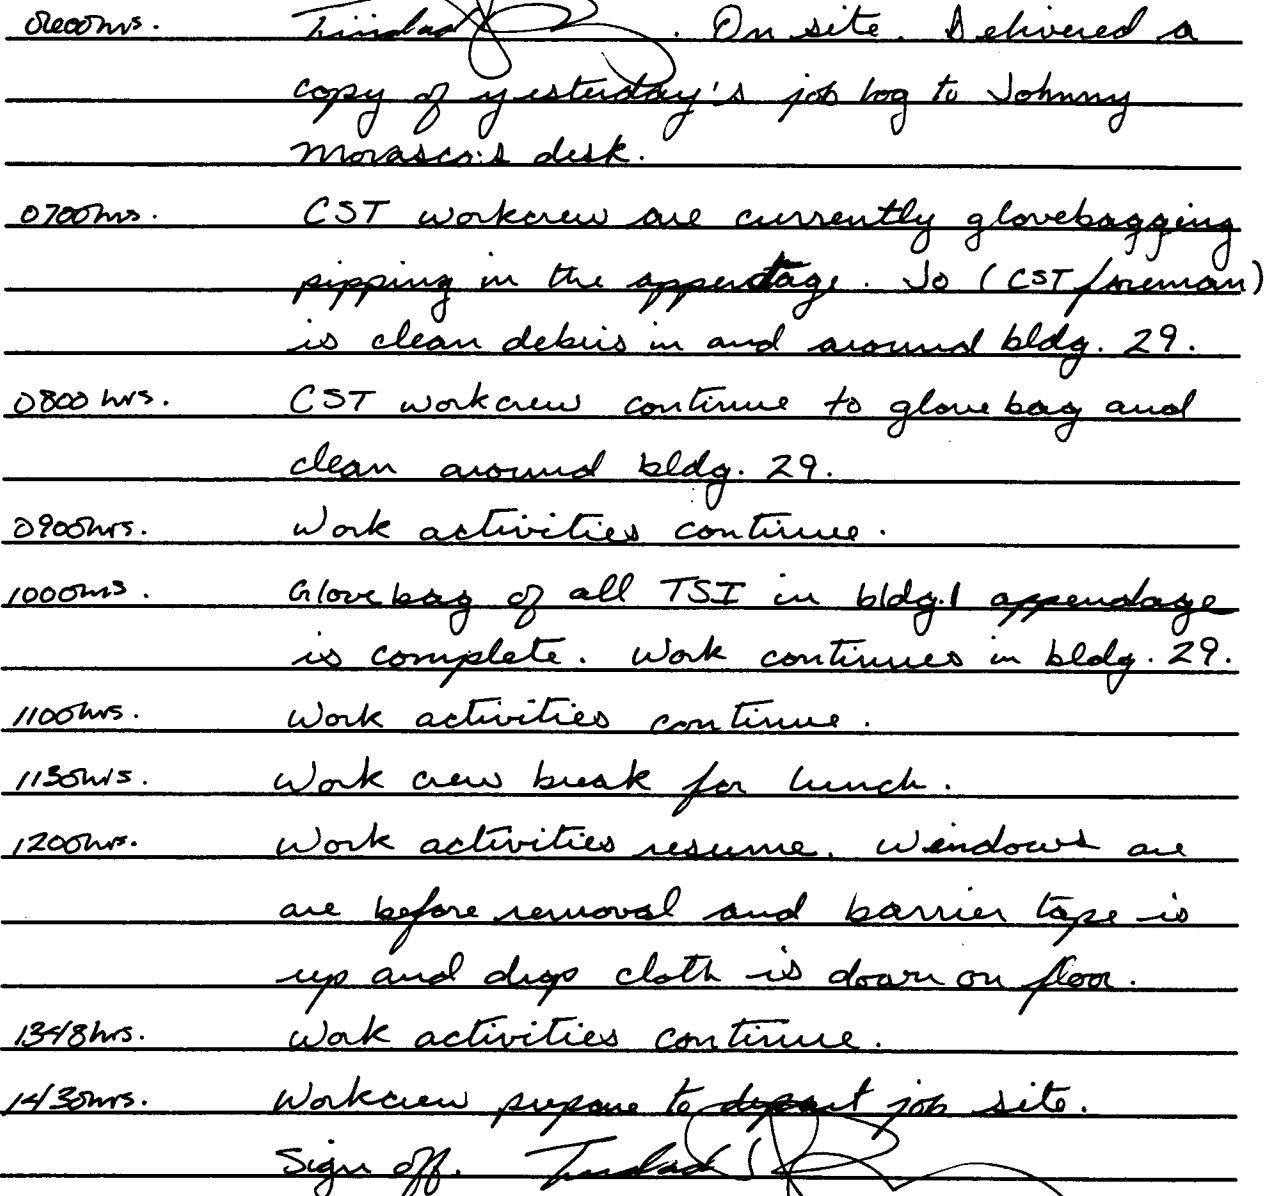 0600hrs. Trinidad. On site. Delivered a
copy of yesterday's job log to Johnny
Morasco's desk.
0700hrs. CST workcrew are currently glovebagging
pipping in the appendage. Jo (CST foreman)
is clean debris in and around bldg. 29.
0800 hrs. CST workcrew continue to glove bag and
clean around bldg. 29.
0900hrs. Work activities continue.
1000hrs. Glove bag of all TSI in bldg.1 appendage
is complete. Work continues in bldg. 29.
1100hrs. Work activities continue.
1130hrs. Work crew break for lunch.
1200hrs. Work activities resume. Windows are
are before removal and barrier tape is
up and drop cloth is down on floor.
1348hrs. Work activities continue.
1430hrs. Workcrew prepare to depart job site.
Sign off. Trinidad